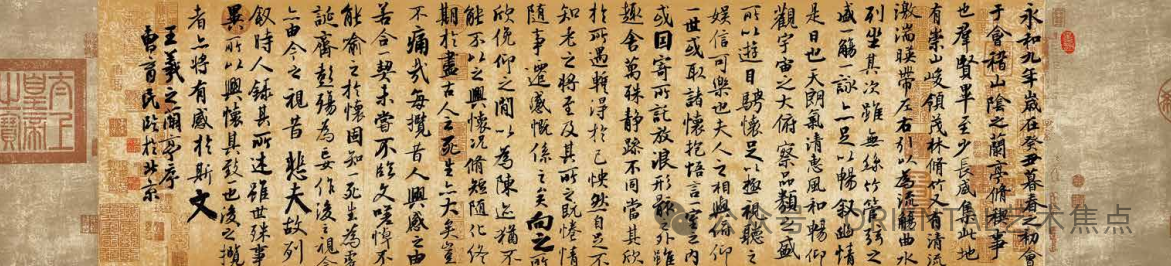 永和九年歲在癸丑暮春之初會
于會稽山陰之蘭亭脩稧事
也羣賢畢至少長咸集此地
有崇山峻領茂林脩竹又有清流
激湍暎帶左右引以為流觴曲水
列坐其次雖無絲竹管弦之
盛一觴一詠亦足以暢叙幽情
是日也天朗氣清惠風和暢仰
觀宇宙之大俯察品類之盛
所以遊目騁懷足以極視聽之
娛信可樂也夫人之相與俯仰
一世或取諸懷抱悟言一室之内
或因寄所託放浪形骸之外雖
趣舍萬殊静躁不同當其欣
於所遇輙得於己怏然自足不
知老之將至及其所之既惓情
隨事遷感慨係之矣向之所
欣俛仰之閒以為陳迹猶不
能不以之興懷况脩短隨化終
期於盡古人云死生亦大矣豈
不痛哉每攬昔人興感之由
若合一契未嘗不臨文嗟悼不
能喻之於懷固知一死生為虛
誕齊彭殤為妄作後之視今
亦由今之視昔悲夫故列
叙時人録其所述雖世殊事
異所以興懷其致一也後之攬
者亦將有感於斯文
王羲之蘭亭序
曹育民臨於北京
公众号 · ORIENTAL艺术焦点